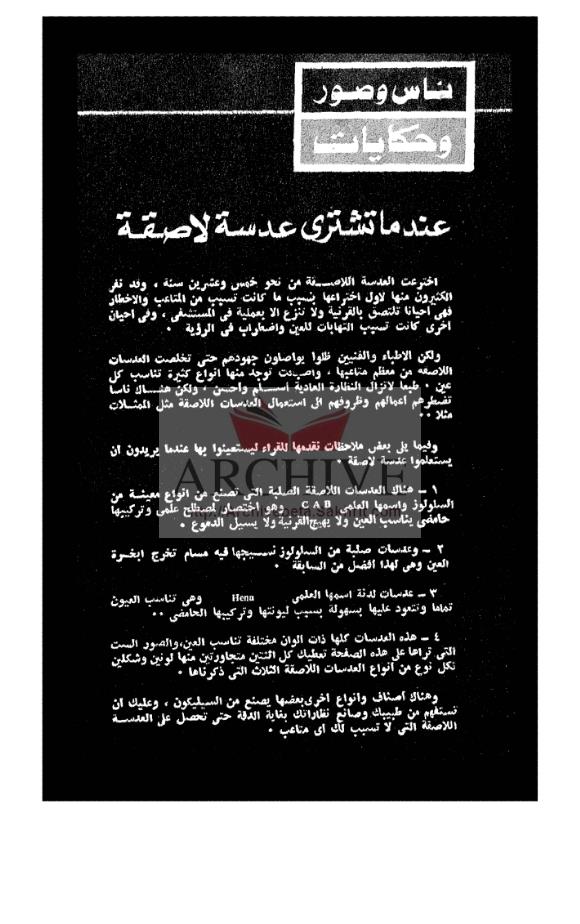 ناس وصور
وحكايات
عندما تشترى عدسة لاصقة
اخترعت العدسة اللاصقة من نحو خمس وعشرين سنة ، وقد نفر
الكثيرون منها لاول اختراعها بسبب ما كانت تسبب من المتاعب والاخطار
فهى احيانا تلتصق بالقرنية ولا تنزع الا بعملية فى المستشفى ، وفى احيان
اخرى كانت تسبب التهابات للعين واضطراب فى الرؤية .
ولكن الاطباء والفنيين ظلوا يواصلون جهودهم حتى تخلصت العدسات
اللاصقه من معظم متاعبها ، واصبحت توجد منها انواع كثيرة تناسب كل
عين . طبعا لاتزال النظارة العادية اسلم واحسن ، ولكن هناك ناسا
تضطرهم اعمالهم وظروفهم الى استعمال العدسات اللاصقة مثل الممثلات
مثلا ..
وفيما يلى بعض ملاحظات نقدمها للقراء ليستعينوا بها عندما يريدون ان
يستعملوا عدسة لاصقة .
ARCHIVE
http://Archivebeta.Sakhrit.com
١ ــ هناك العدسات اللاصقة الصلبة التى تصنع من انواع معينة من
السلولوز واسمها العلمى C A B وهو اختصار لمصطلح علمى وتركيبها
حامضى يناسب العين ولا يهيج القرنية ولا يسيل الدموع .
٢ ــ وعدسات صلبة من السلولوز نسيجها فيه مسام تخرج ابخرة
العين وهى لهذا افضل من السابقة .
٣ ــ عدسات لدنة اسمها العلمى Hena وهى تناسب العيون
تماما وتتعود عليها بسهولة بسبب ليونتها وتركيبها الحامضى ..
٤ ــ هذه العدسات كلها ذات الوان مختلفة تناسب العين،والصور الست
التى تراها على هذه الصفحة تعطيك كل اثنتين متجاورتين منها لونين وشكلين
لكل نوع من انواع العدسات اللاصقة الثلاث التى ذكرناها .
وهناك أصناف وانواع اخرى بعضها يصنع من السيليكون ، وعليك ان
تستفهم من طبيبك وصانع نظاراتك بغاية الدقة حتى تحصل على العدسة
اللاصقة التى لا تسبب لك أى متاعب .